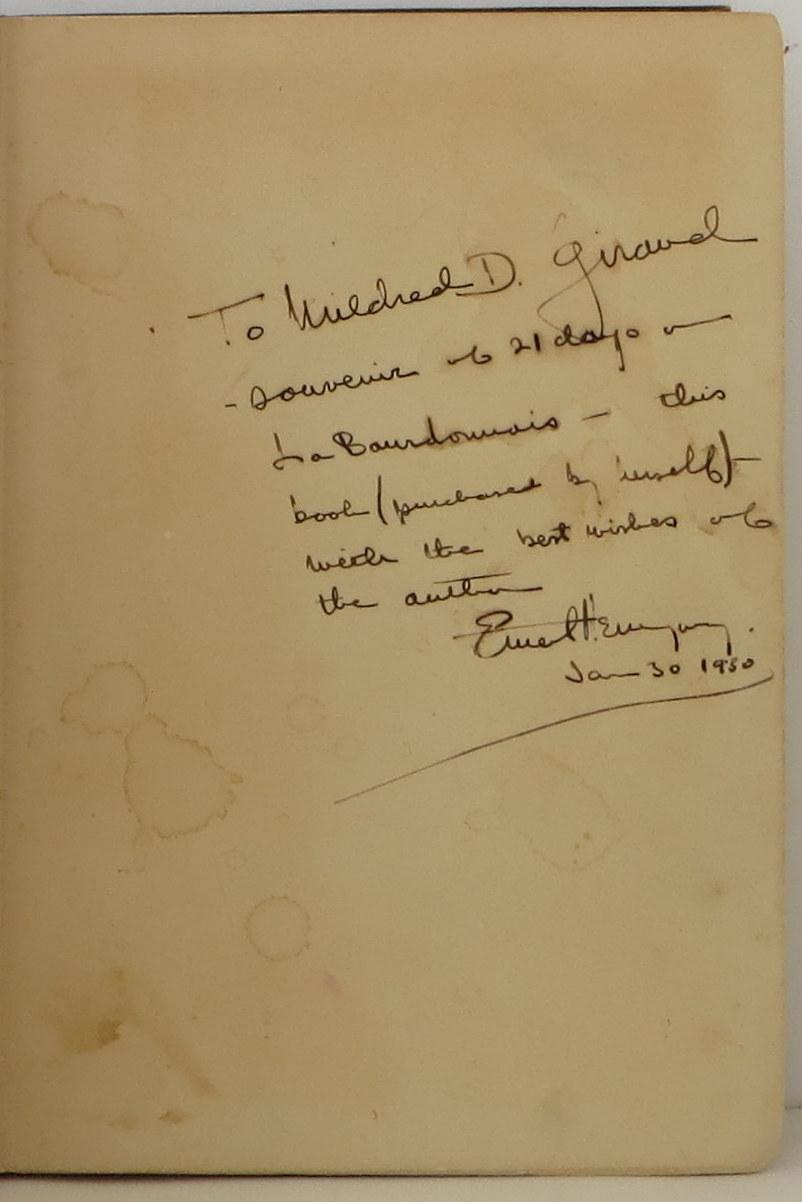 To Mildred D. Giraud
- souvenir of 21 days on
La Bourdonnais – this
book (purchased by himself) –
with the best wishes of
the author
Ernest Hemingway.
Jan 30 1930